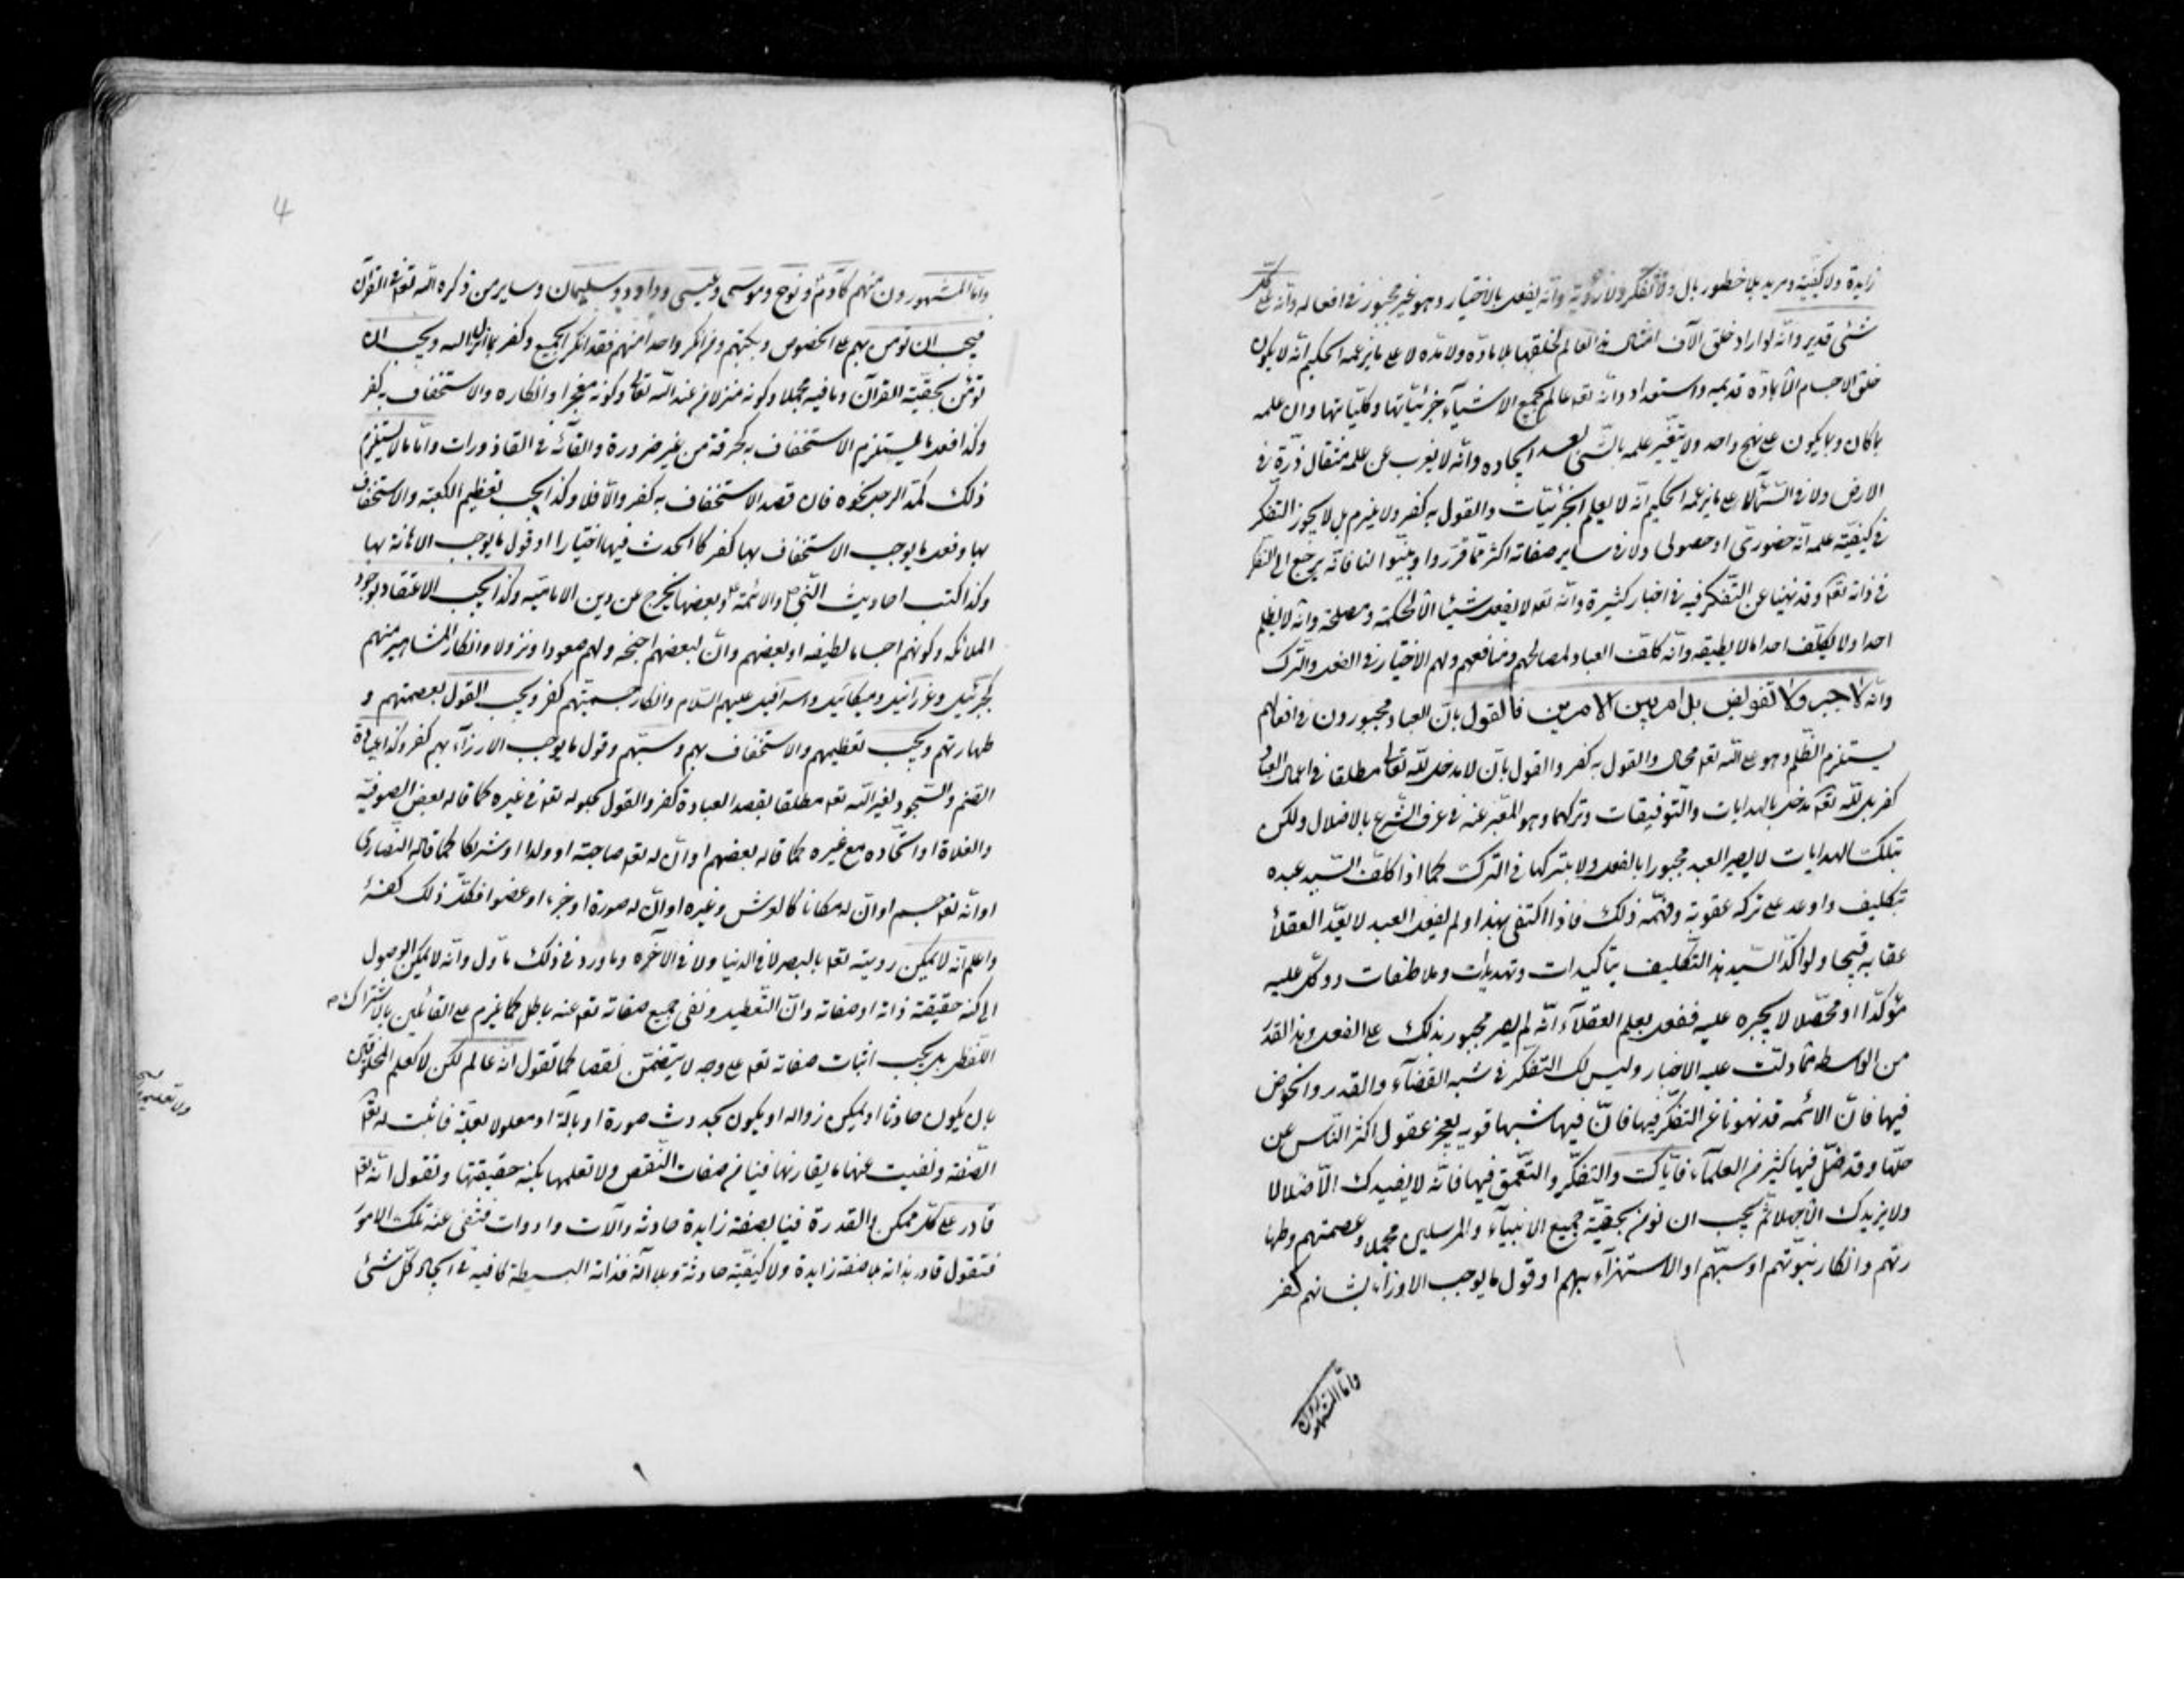 زايدة ولا كيفية ومريد بلا خطور بال ولا تفكر ولا روية وانه يفعل بالاختيار وهو غير مجبور في افعاله وانه على كل
شئ قدير وانه لو اراد خلق آلاف امثال هذا العالم لخلقها بلا مادة ولا مدة لا على ما يزعمه الحكيم انه لا يكون
خلق الاجسام الا بمادة قديمه واستعداد وانه تعه عالم بجميع الاشيآء جزئياتها وكلياتها وان علمه
بما كان وبما يكون على نهج واحد ولا يتغير علمه بالشئ بعد ايجاده وانه لا يعزب عن علمه مثقال ذرة في
الارض ولا في السمآء لا على ما يزعمه الحكيم انه لا يعلم الجزئيات والقول به كفر ولا يلزم بل لا يجوز التفكر
في كيفية علمه انه حضوري او حصولي ولا في ساير صفاته اكثر مما قرروا وبينوا لنا فانه يرجع الى التفكر
في ذاته تعه وقد نهينا عن التفكر فيه في اخبار كثيرة وانه تعه لا يفعل شيئا الا لحكمة ومصلحة وانه لا يظلم
احدا ولا يكلف احدا ما لا يطيقه وانه كلف العباد لمصالحهم ومنافعهم ولهم الاختيار في الفعل والترك
وانه لا جبر ولا تفويض بل امر بين الامرين فالقول بان العباد مجبورون في افعالهم
يستلزم الظلم وهو على الله تعه محال والقول به كفر والقول بان لا مدخل لله تعالى مطلقا في اعمال العباد
كفر بل لله تعه مدخل بالهدايات والتوفيقات وتركهما وهو المعبر عنه في عرف الشرع بالاضلال ولكن
بتلك الهدايات لا يصير العبد مجبورا بالفعل ولا بتركها في الترك كما اذا كلف السيد عبده
بتكليف واوعد على تركه عقوبة وفهمه ذلك فاذا اكتفى بهذا ولم يفعل العبد لا يعد العقلآء
عقابه قبيحا ولو اكد السيد هذا التكليف بتاكيدات وتهديدات وملاطفات ووكل عليه
مؤكدا او محصلا لا يجبره عليه ففعل يعلم العقلآء انه لم يصر مجبور بذلك على الفعل وهذا القدر
من الواسطه مما دلت عليه الاخبار وليس لك التفكر في شبه القضآء والقدر والخوض
فيها فان الائمه قد نهونا عن التفكر فيها فان فيها شبها قوية يعجز عقول اكثر الناس عن
حلها وقد ضل فيها كثير من العلمآء فاياك والتفكر والتعمق فيها فانه لا يفيدك الا ضلالا
ولا يزيدك الا جهلا ثم يجب ان تؤمن بحقية جميع الانبيآء والمرسلين مجملا وعصمتهم وطها
رتهم وانكار نبوتهم او سبهم او الاستهزآء بهم او قول ما يوجب الازرآء بشانهم كفر
واما المشهورون
4
واما المشهورون منهم كادم ونوح وموسى وعيسى وداود وسليمان وساير من ذكره الله تعه في القرآن
فيجب ان تؤمن بهم على الخصوص وبكتبهم ومن انكر واحدا منهم فقد انكر الجميع وكفر بما انزل الله ويجب ان
تؤمن بحقية القرآن وما فيه مجملا وكونه منزلا من عند الله تعالى وكونه معجزا وانكاره والاستخفاف به كفر
وكذا فعل ما يستلزم الاستخفاف به كحرقة من غير ضرورة والقآئه في القاذورات واما ما لا يستلزم
ذلك كمد الرجل نحوه فان قصد الاستخفاف به كفر والا فلا وكذا يجب تعظيم الكعبة والاستخفاف
بها وفعل ما يوجب الاستخفاف بها كفر كالحدث فيها اختيارا او قول ما يوجب الاهانة بها
وكذا كتب احاديث النبي ص والائمة ع وبعضها يخرج عن دين الامامية وكذا يجب الاعتقاد بوجود
الملائكه وكونهم اجساما لطيفه او بعضهم وان لبعضهم اجنحه ولهم صعودا ونزولا وانكار المشاهير منهم
كجبرئيل وعزرائيل وميكائيل واسرافيل عليهم السلام وانكار جسميتهم كفر ويجب القول بعصمتهم و
طهارتهم ويجب تعظيمهم والاستخفاف بهم وسبهم وقول ما يوجب الازرآء بهم كفر وكذا عبادة
الصنم والسجود لغير الله تعه مطلقا بقصد العبادة كفر والقول بحلوله تعه في غيره كما قاله بعض الصوفية
والغلاة او اتحاده مع غيره كما قاله بعضهم او ان له تعه صاحبة او ولدا او شريكا كما قاله النصارى
او انه تعه جسم او ان له مكانا كالعرش وغيره او ان له صورة او جزء او عضوا فكل ذلك كفر
واعلم انه لا يمكن رويته تعه بالبصر لا في الدنيا ولا في الآخره وما ورد في ذلك ماول وانه لا يمكن الوصول
الى كنه حقيقة ذاته او صفاته وان التعطيل ونفى جميع صفاته تعه عنه باطل كما يلزم على القائلين بالاشتراك
اللفظي بل يجب اثبات صفاته تعه على وجه لا يتضمن نقصا كما تقول انه عالم لكن لا كعلم المخلوقين
بان يكون حادثا او يمكن زواله او يكون بحدوث صورة او بآلة او معلولا بعلة فاثبت له تعه
الصفة ونفيت عنها ما يقارنها فينا من صفات النقص ولا تعلمها بكنه حقيقتها وتقول انه تعه
قادر على كل ممكن والقدرة فينا بصفة زايدة حادثة وآلات وادوات فتنفى عنه تلك الامور
فتقول قادر بذاته بلا صفة زايدة ولا كيفية حادثة وبلا آلة فذاته البسيطة كافية في ايجاد كل شئ